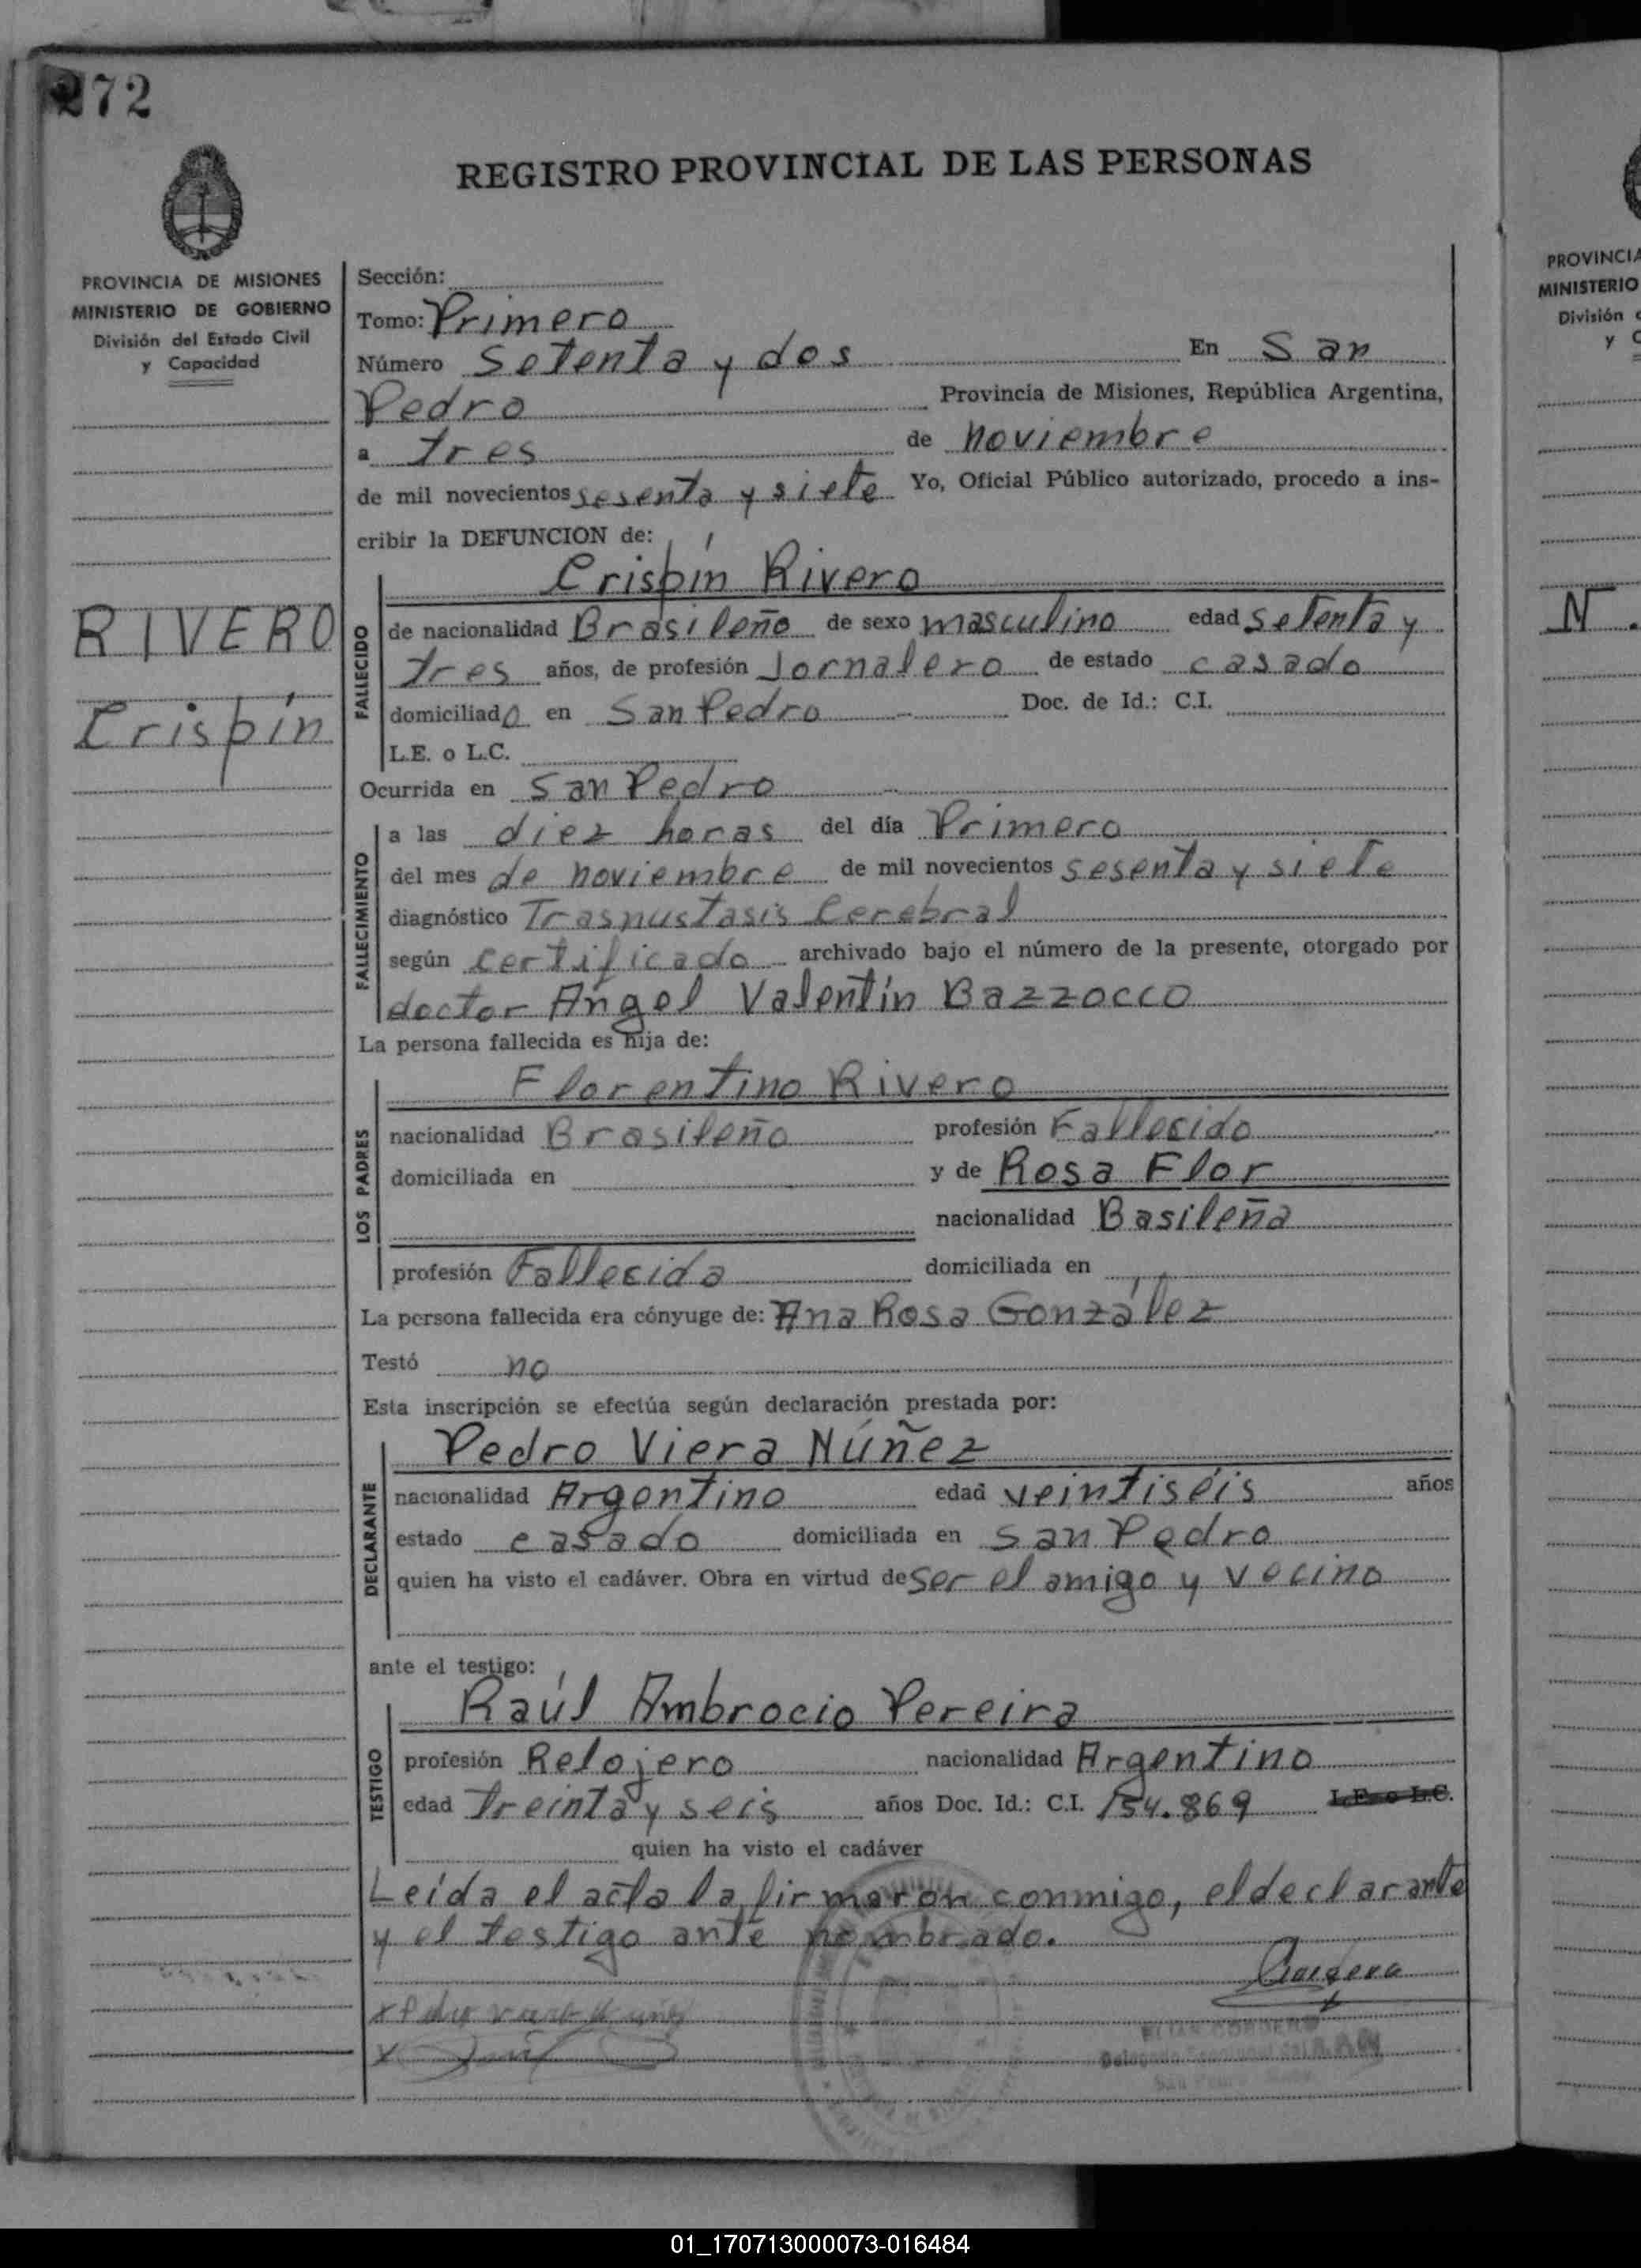 272
REGISTRO PROVINCIAL DE LAS PERSONAS
PROVINCIA DE MISIONES
MINISTERIO DE GOBIERNO
División del Estado Civil
y Capacidad
RIVERO
Crispín
Sección:
Tomo: Primero
Número setenta y dos En San
Pedro Provincia de Misiones, República Argentina,
a tres de noviembre
de mil novecientos sesenta y siete Yo, Oficial Público autorizado, procedo a ins-
cribir la DEFUNCION de:
Crispín Rivero
FALLECIDO
de nacionalidad Brasileño de sexo masculino edad setenta y
tres años, de profesión Jornalero de estado casado
domiciliado en San Pedro Doc. de Id.: C.I.
L.E. o L.C.
Ocurrida en San Pedro
FALLECIMIENTO
a las diez horas del día Primero
del mes de noviembre de mil novecientos sesenta y siete
diagnóstico Trasnustasis Cerebral
según certificado archivado bajo el número de la presente, otorgado por
doctor Angel Valentín Bazzocco
La persona fallecida es hija de:
LOS PADRES
Florentino Rivero
nacionalidad Brasileño profesión Fallecido
domiciliada en y de Rosa Flor
nacionalidad Basileña
profesión Fallecida domiciliada en
La persona fallecida era cónyuge de: Ana Rosa González
Testó no
Esta inscripción se efectúa según declaración prestada por:
DECLARANTE
Pedro Viera Núñez
nacionalidad Argentino edad veintiséis años
estado casado domiciliada en San Pedro
quien ha visto el cadáver. Obra en virtud de ser el amigo y vecino
ante el testigo:
TESTIGO
Raúl Ambrocio Pereira
profesión Relojero nacionalidad Argentino
edad treinta y seis años Doc. Id.: C.I. 154.869 L.E. o L.C.
quien ha visto el cadáver
Leída el acta la firmaron conmigo, el declarante
y el testigo ante nombrado.
ELIAS CORDERO
PROVINCIA
MINISTERIO
División
y
N.
01_170713000073-016484